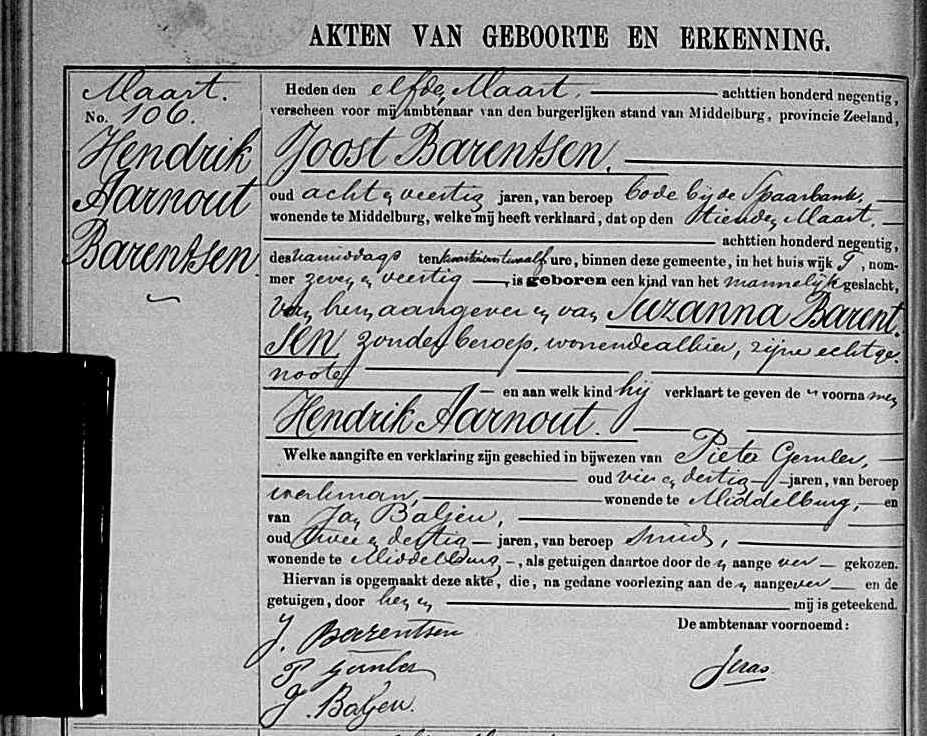 AKTEN VAN GEBOORTE EN ERKENNING.
Maart.
No. 106.
Hendrik
Aarnout
Barentsen.
Heden den elfden Maart. achttien honderd negentig,
verscheen voor mij ambtenaar van den burgerlijken stand van Middelburg, provincie Zeeland,
Joost Barentsen,
oud acht en veertig jaren, van beroep bode bij de Spaarbank,
wonende te Middelburg, welke mij heeft verklaard, dat op den tienden Maart.
achttien honderd negentig,
des namiddags ten ure, binnen deze gemeente, in het huis wijk T, nom-
mer zeven en veertig, is geboren een kind van het mannelijk geslacht,
van hem aangever en van Suzanna Barent-
sen zonder beroep, wonende alhier, zijne echtge-
noote
en aan welk kind hij verklaart te geven de voornamen
Hendrik Aarnout.
Welke aangifte en verklaring zijn geschied in bijwezen van Pieter Gernler,
oud vier en dertig jaren, van beroep
werkman, wonende te Middelburg, en
van Jan Baljeu,
oud twee en dertig jaren, van beroep smid,
wonende te Middelburg, als getuigen daartoe door den aangever gekozen.
Hiervan is opgemaakt deze akte, die, na gedane voorlezing aan den aangever en de
getuigen, door hen en mij is geteekend.
De ambtenaar voornoemd:
J. Barentsen
P Gernler
J. Baljeu.